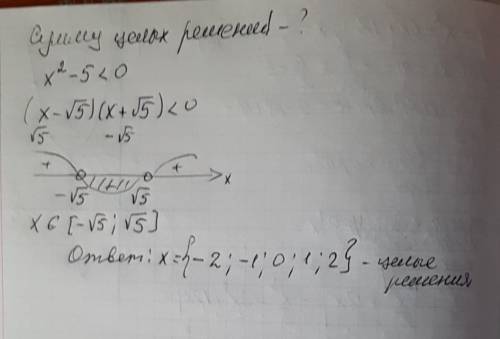 Сумму целых решений - ?
x² - 5 < 0
(x - √5)(x + √5) < 0
√5 -√5
+ +
-√5 √5 x
x ∈ [-√5; √5]
Ответ: x = {-2; -1; 0; 1; 2} - целые
решения